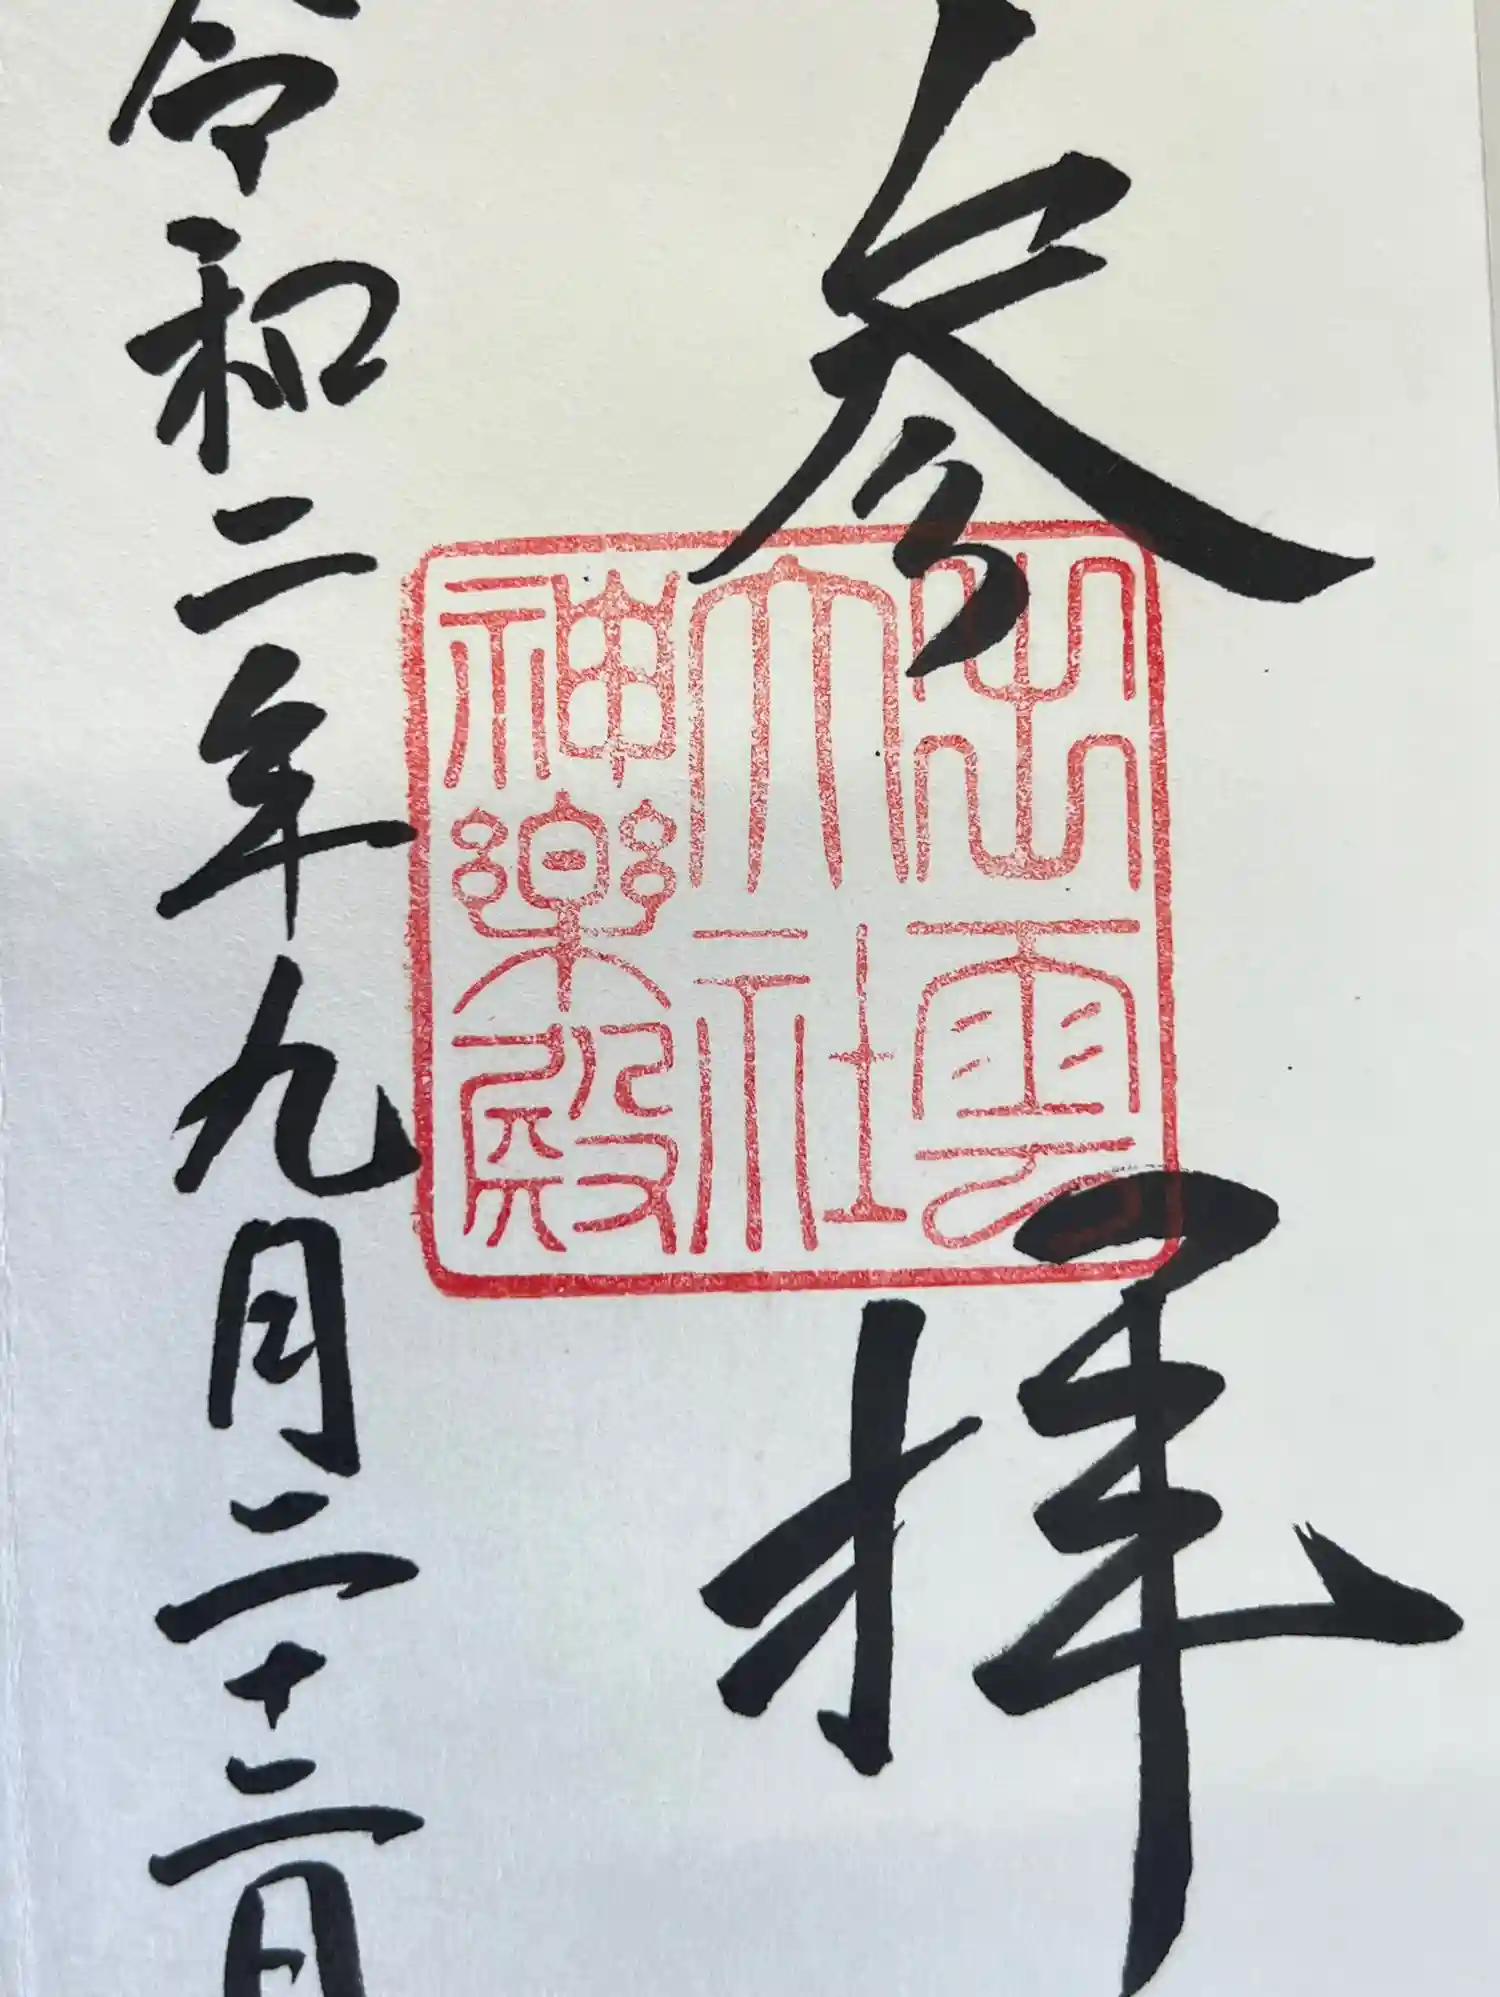 参拝
出雲
大社
神楽殿
令和二年九月二十二日